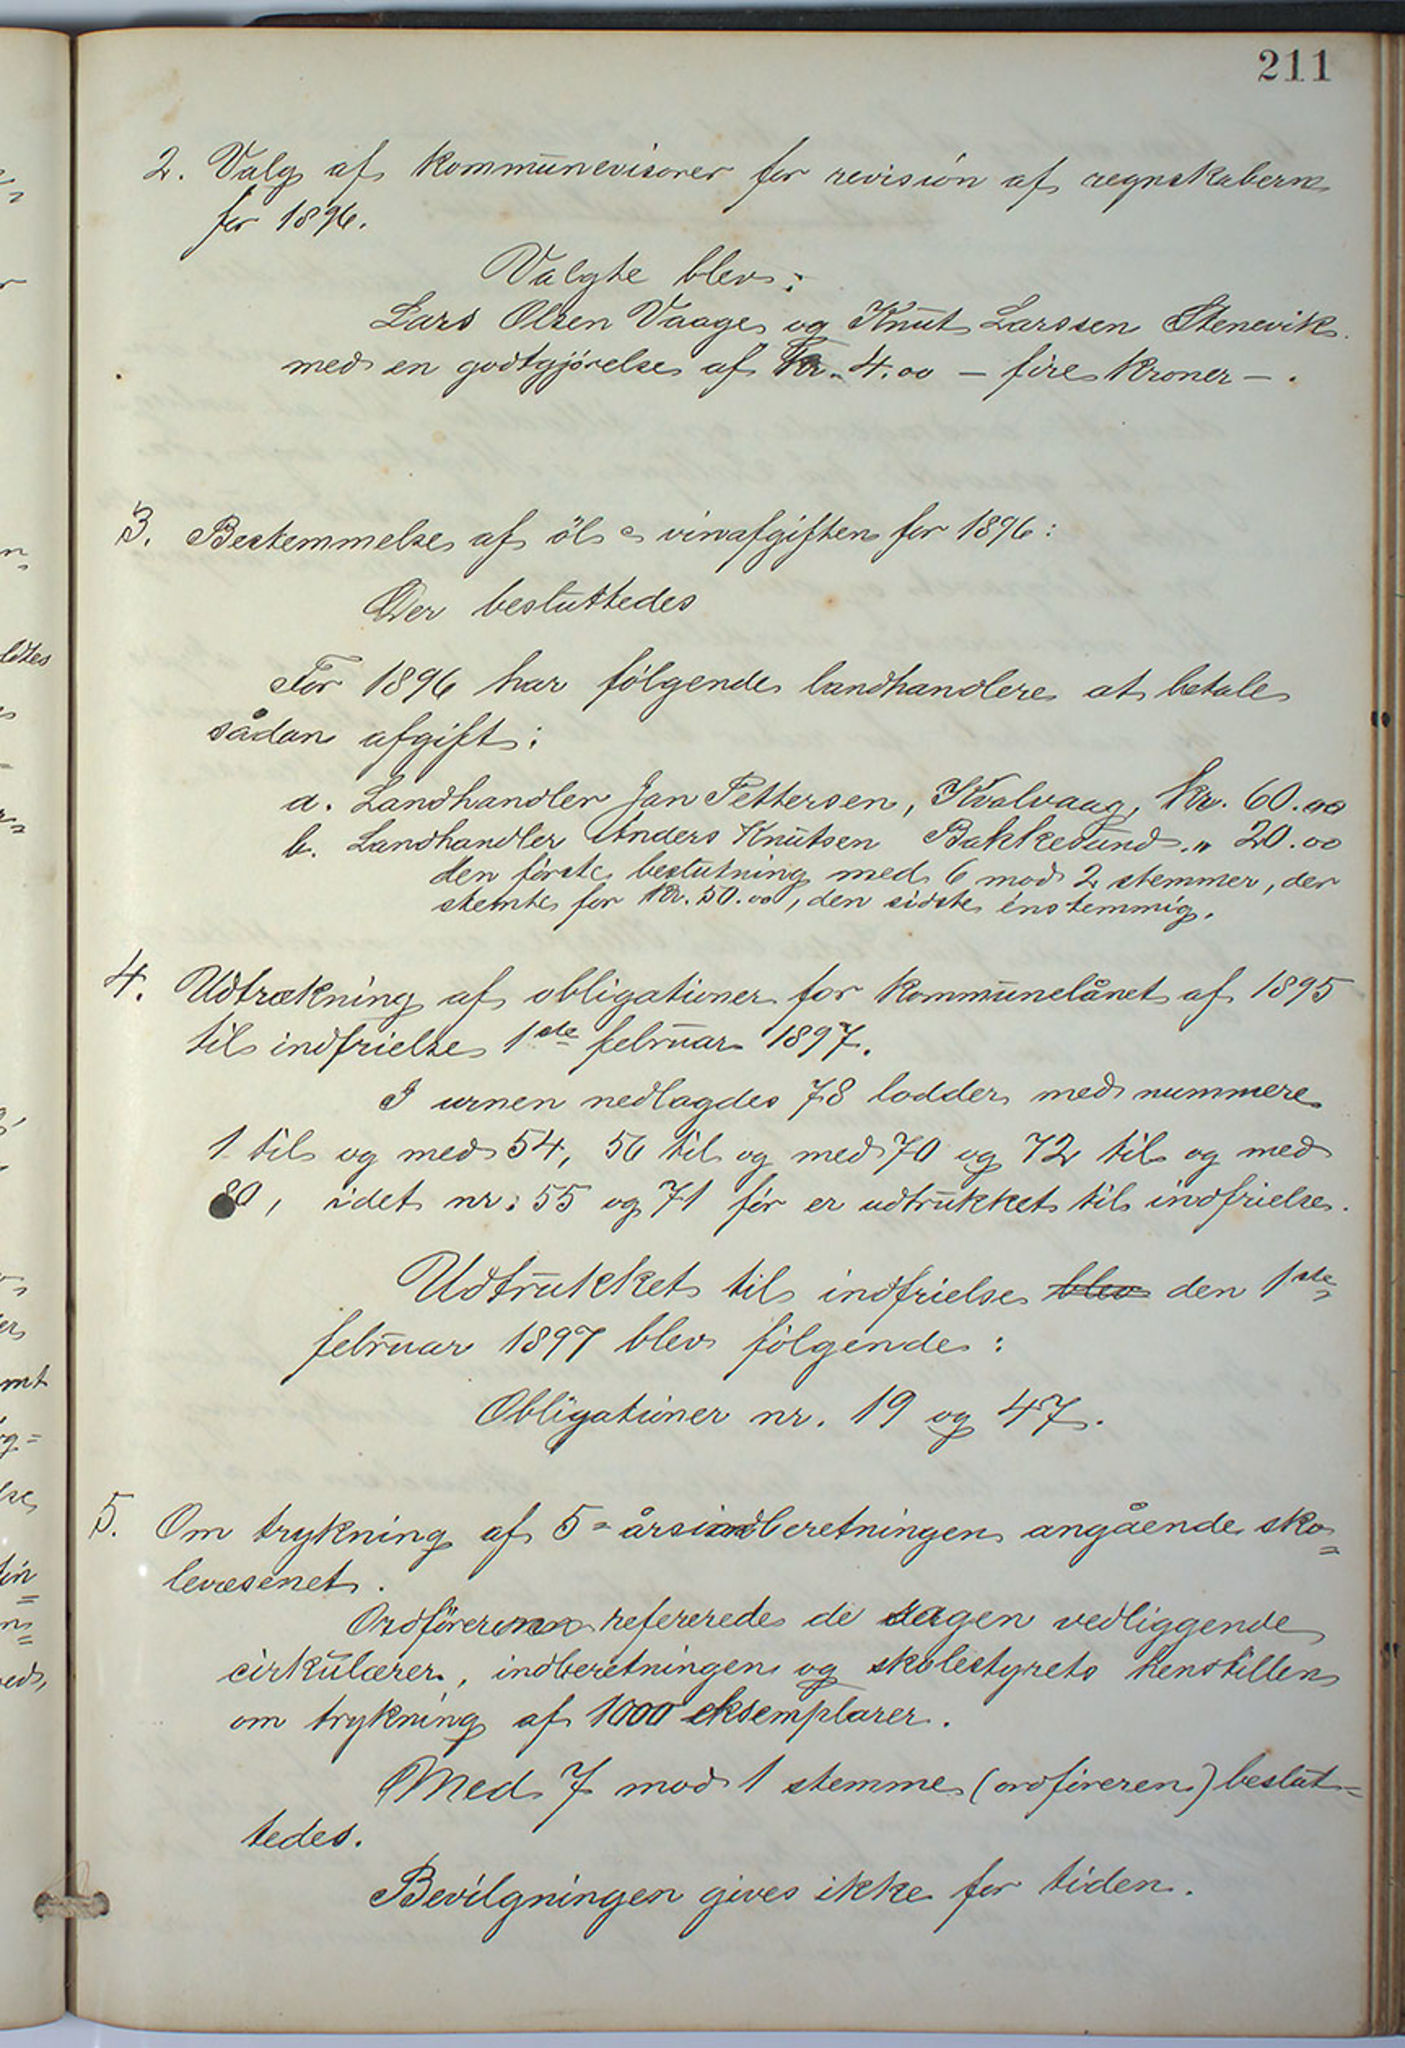 211
2. Valg af kommunevisorer for revision af regnskaberne
for 1896.
Valgte blev:
Lars Olsen Vaage og Knut Larssen Stenevik
med en godtgjörelse af kr. 4.00 — fire kroner — .
3. Bestemmelse af öl & vinafgiften for 1896:
Der besluttedes
For 1896 har fölgende landhandlere at betale
sådan afgift:
a. Landhandler Jan Pettersen, Kvalvaag, kr. 60.00
b. Landhandler Anders Knutsen Bakkesund „ 20.00
den förste beslutning med 6 mod 2 stemmer, der
stemte for kr. 50.00, den sidste énstemmig.
4. Udtrækning af obligationer for kommunelånet af 1895
til indfrielse 1ste februar 1897.
I urnen nedlagdes 78 lodder med nummere
1 til og med 54, 56 til og med 70 og 72 til og med
80, idet nr: 55 og 71 för er udtrukket til indfrielse.
Udtrukket til indfrielse blev den 1ste
februar 1897 blev fölgende:
Obligationer nr. 19 og 47.
5. Om trykning af 5-årsindberetningen angående sko=
levæsenet.
Ordföreren refererede de sagen vedliggende
cirkulærer, indberetningen og skolestyrets henstillen
om trykning af 1000 eksemplarer.
Med 7 mod 1 stemme (ordföreren) beslut=
tedes.
Bevilgningen gives ikke for tiden.